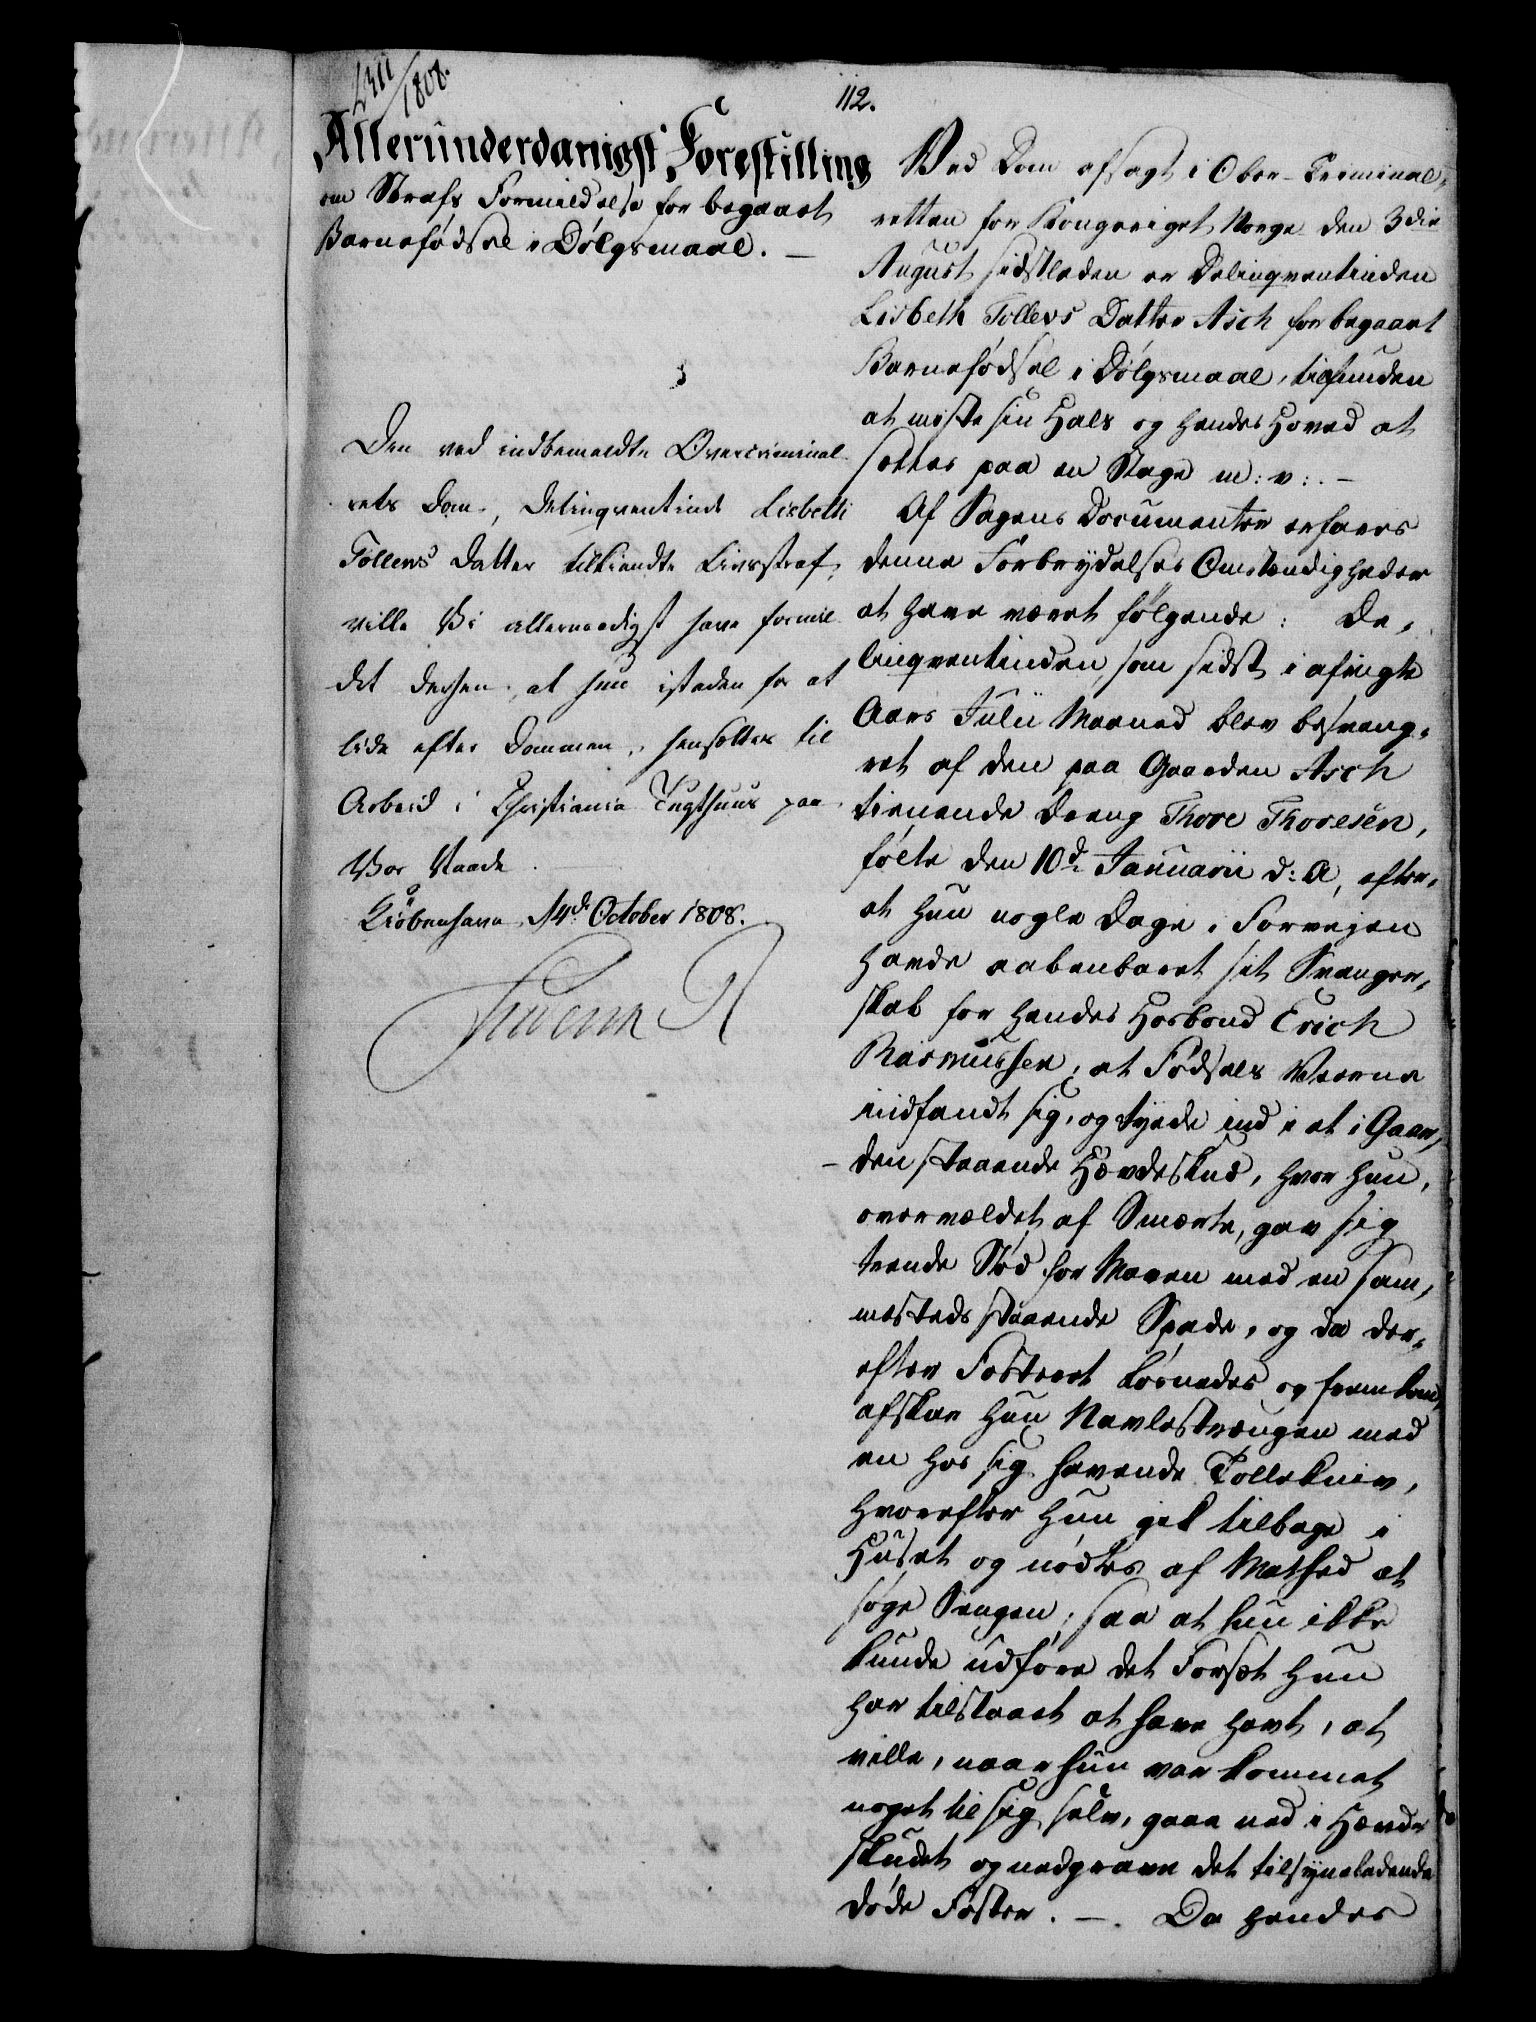 2311/1808.
112.
Allerunderdanigst Forestilling
om Straffs Formildelse for begaaet
Barnefødsel i Dølgsmaal. —
Den ved indbemeldte Overcriminal
rets Dom, Delinqventinde Lisbeth
Tollevs Datter tilkiendte Livsstraf,
ville Vi allernaadigst have formil
det derhen, at hun istæden for at
lide efter Dommen, hensættes til
Arbeid i Christiania Tugthuus paa
Vor Naade.
Kiøbenhavn, 14d October 1808.
Frederik R
Ved Dom afsagt i Ober-Criminal,
retten for Kongeriget Norge den 3die
August sidstleden er Delinqventinden
Lisbeth Tollevs Datter Asch for begaaet
Barnefødsel i Dølgsmaal, tilfunden
at miste sin Hals og hendes Hoved at
sættes paa en Stage m: v:. —
Af Sagens Documenter erfares
denne Forbrydelses Omstændigheder
at have været følgende: De,
linqventinden, som sidst i afvigte
Aars Julii Maaned blev besvang,
ret af den paa Gaarden Asch
tienende Dreng Thore Thoresen,
følte den 10d Januarii d: A, efter,
at hun nogle Dage i Forvejen
havde aabenbaret sit Svanger,
skab for hendes Hosbond Erich
Rasmussen, at Fødsels Veerne
indfandt sig, og tyede ind i et i Gaar,
den staaende Hævdeskud, hvor hun,
overvældet af Smerte, gav sig
trende Stød for Maven med en sam,
mesteds staaende Spade, og da der,
efter Fosteret løsnedes og fremkom,
afskar hun Navlestrængen med
en hos sig havende Tollekniv,
hvorefter hun gik tilbage i
Huset og nødtes af Mathed at
søge Sengen, saa at hun ikke
kunde udføre det Forsæt hun
har tilstaaet at have havt, at
ville, naar hun var kommet
noget til sig selv, gaae ned i Hævde
skudet og nedgrave det tilsyneladende
døde Foster. —. Da hendes